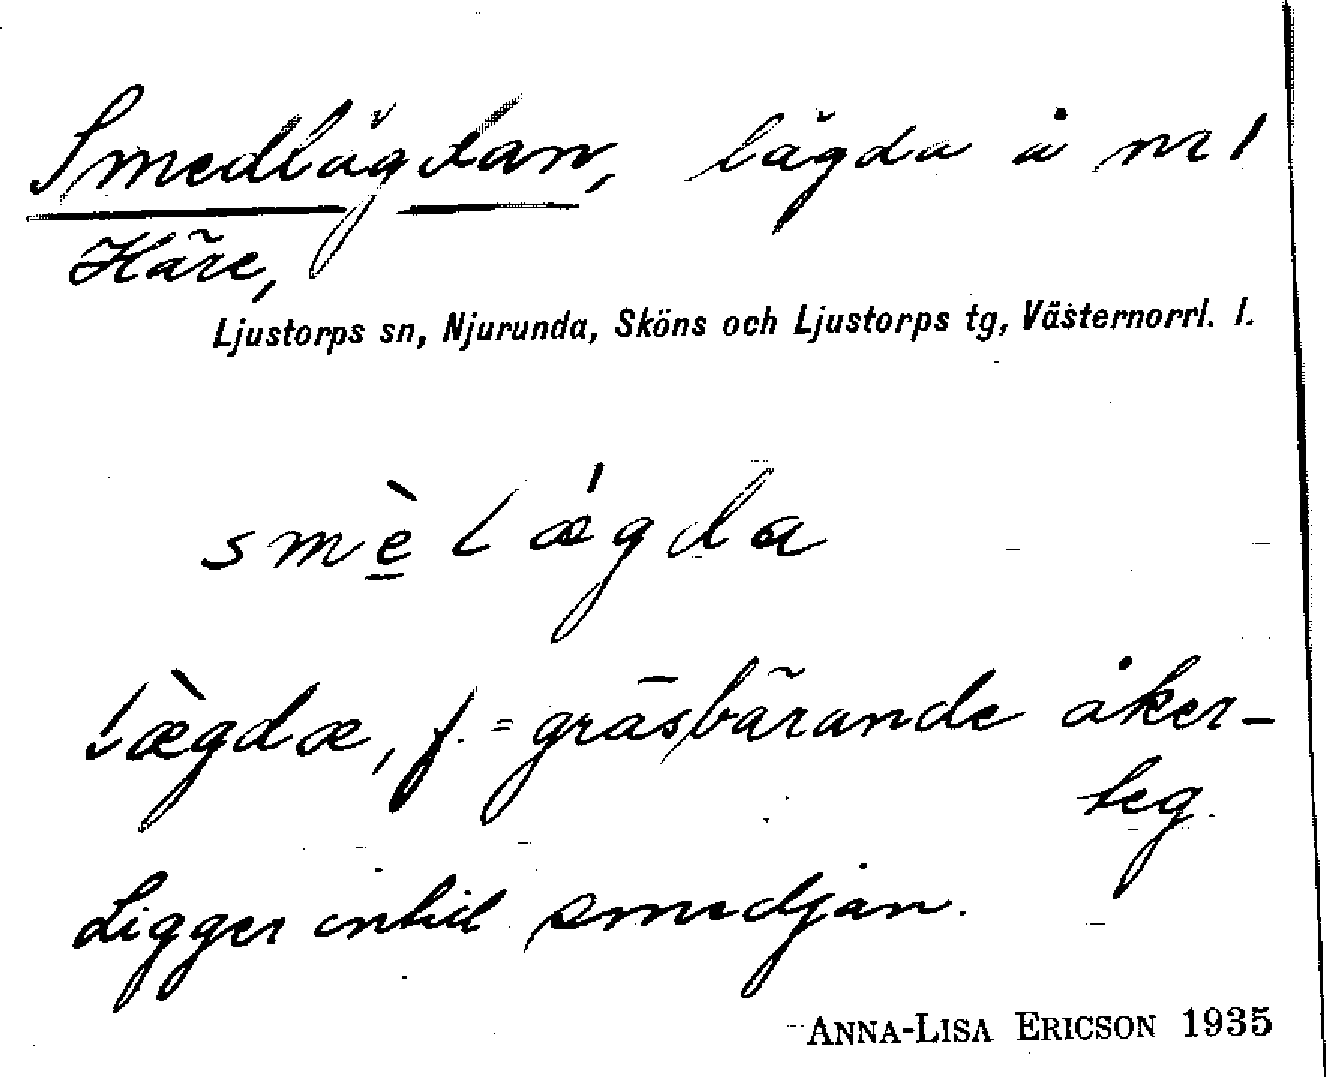 Smedlägdan, lägda å nr 1
Häre,
Ljustorps sn, Njurunda, Sköns och Ljustorps tg, Västernorrl. l.
smè̱lǽgda
lægdæ, f. = gräsbärande åker-
teg.
Ligger intill smedjan.
ANNA-LISA ERICSON 1935